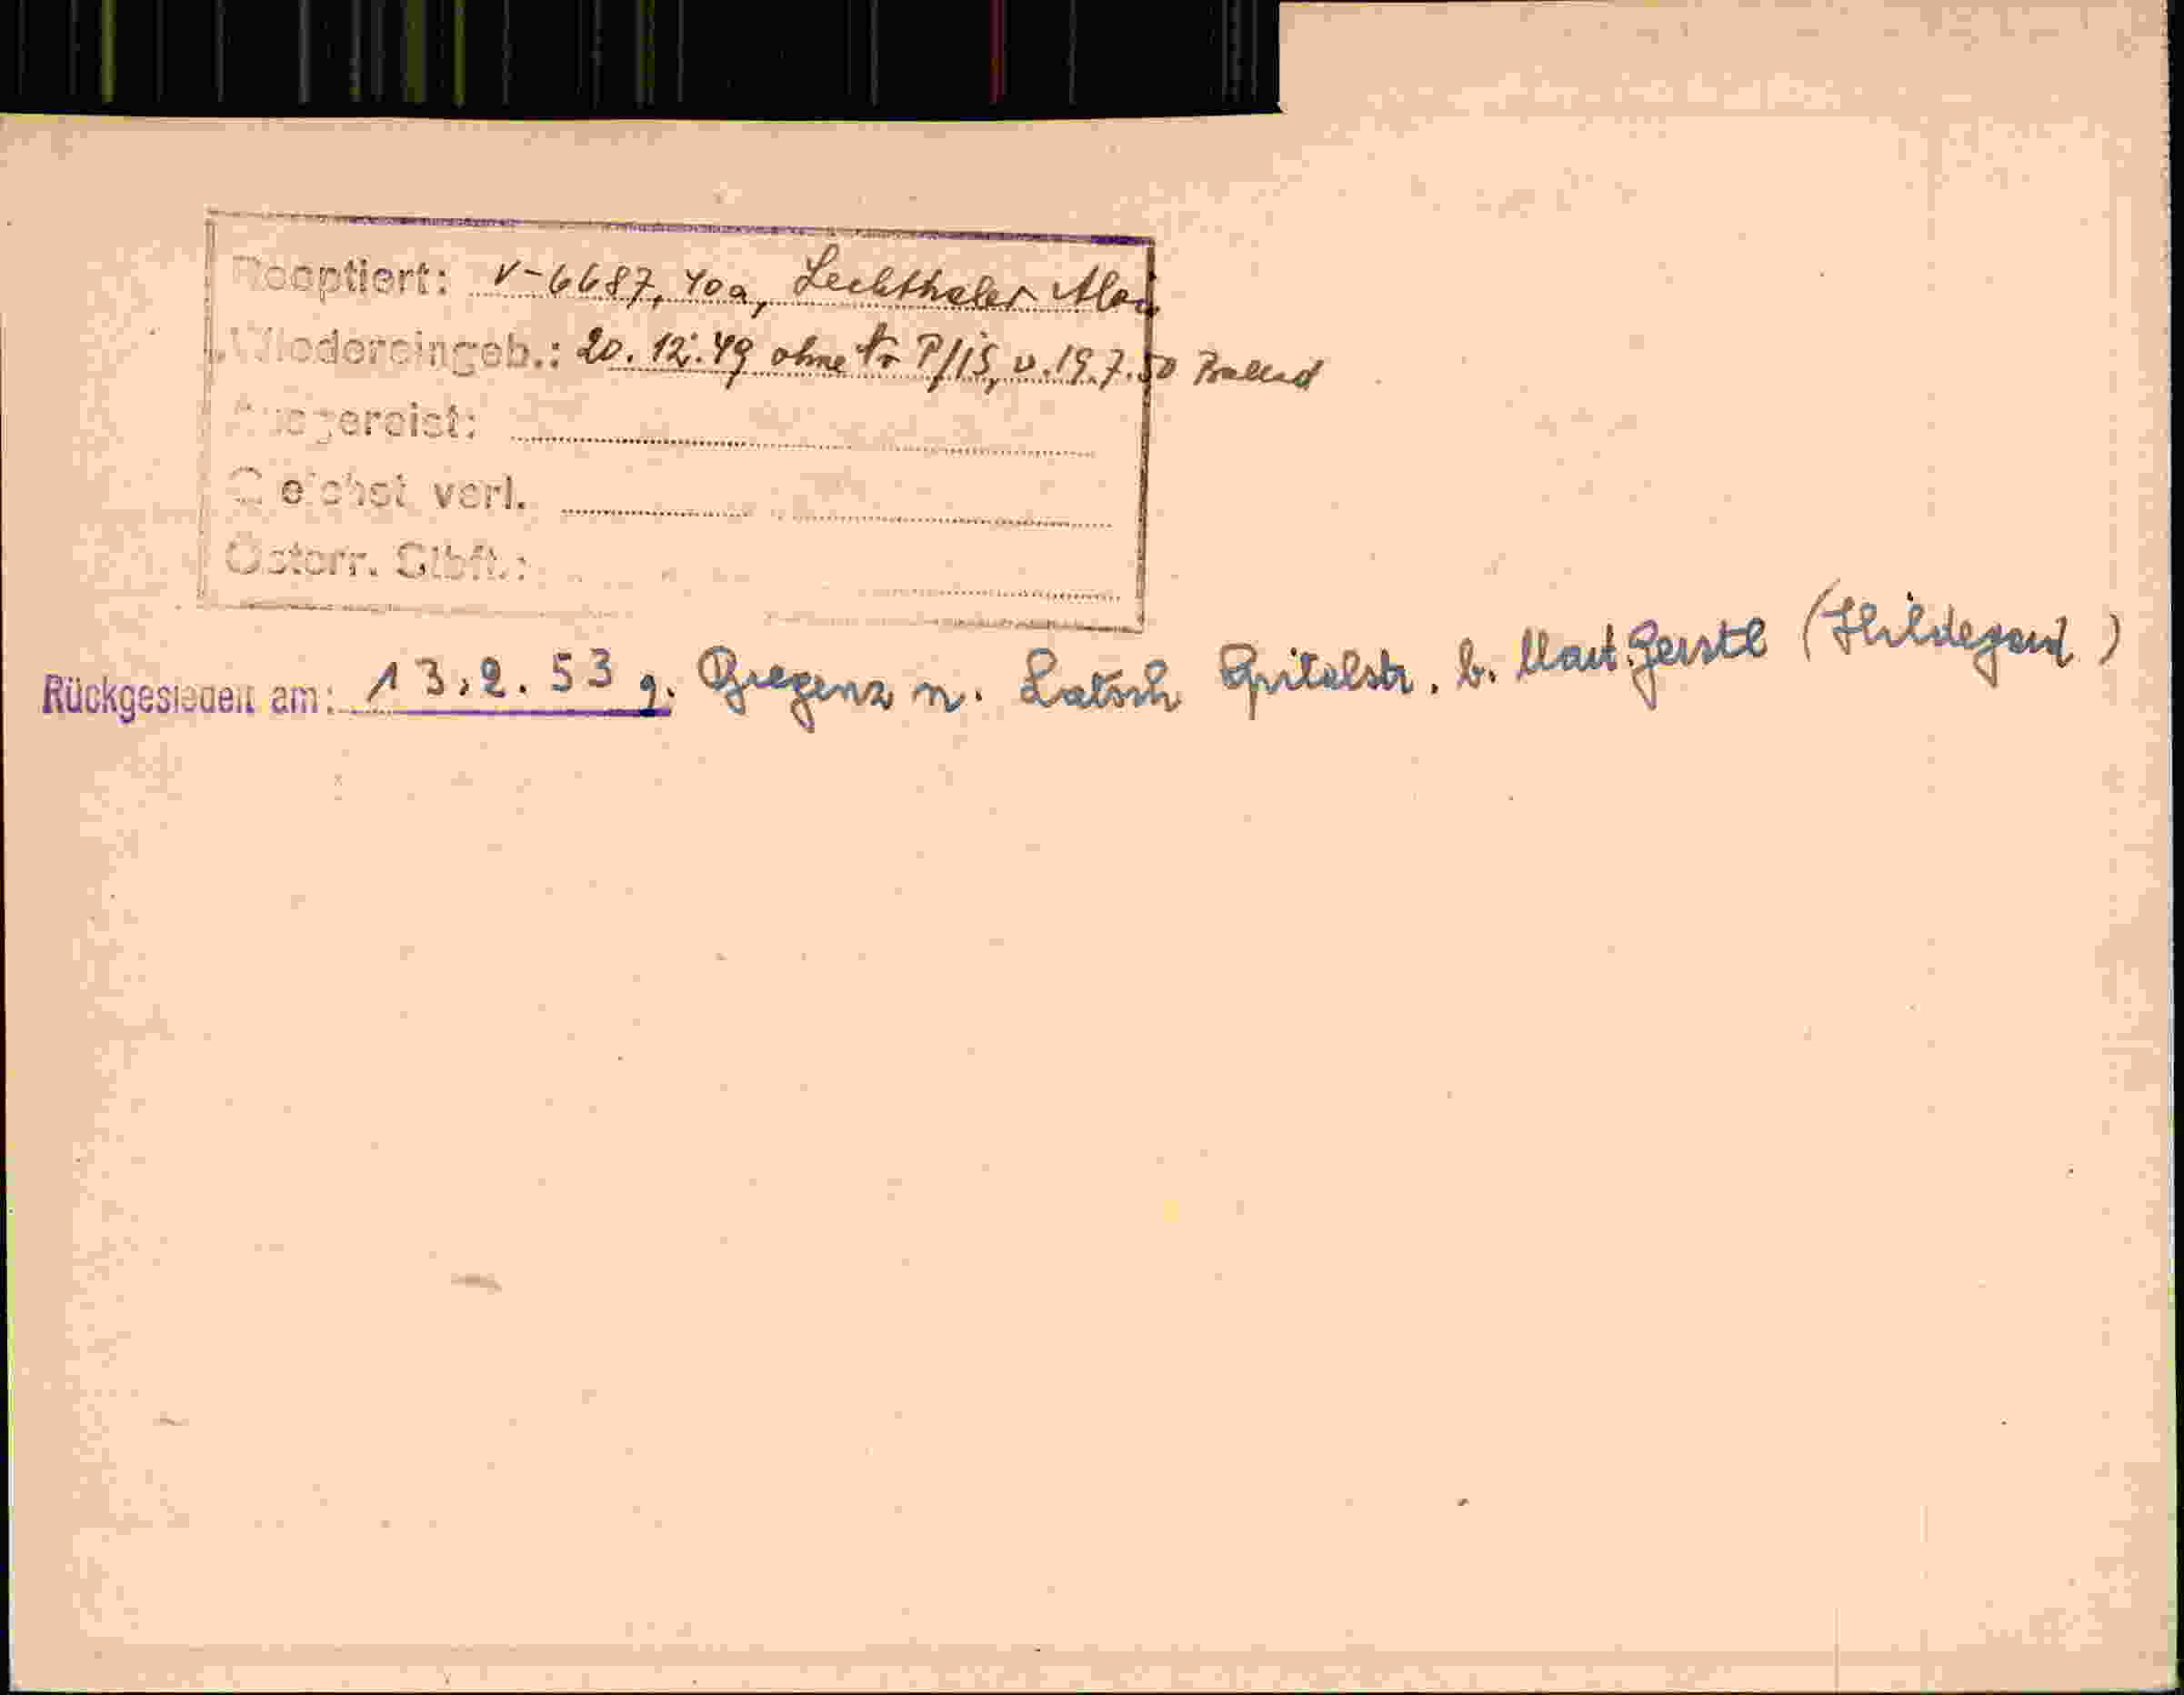 Reoptiert: V-6687, 40a, Lechthaler Alois
Wiedereingeb.: 20.12.49 ohne Nr P/15, v. 19.7.50
Ausgereist:
Gleichst. verl.
Österr. Stbft.:
Rückgesiedelt am: 13.2.53 g. Bregenz n. Latsch Spitalstr. b. Mart. Gerstl (Hildegard)